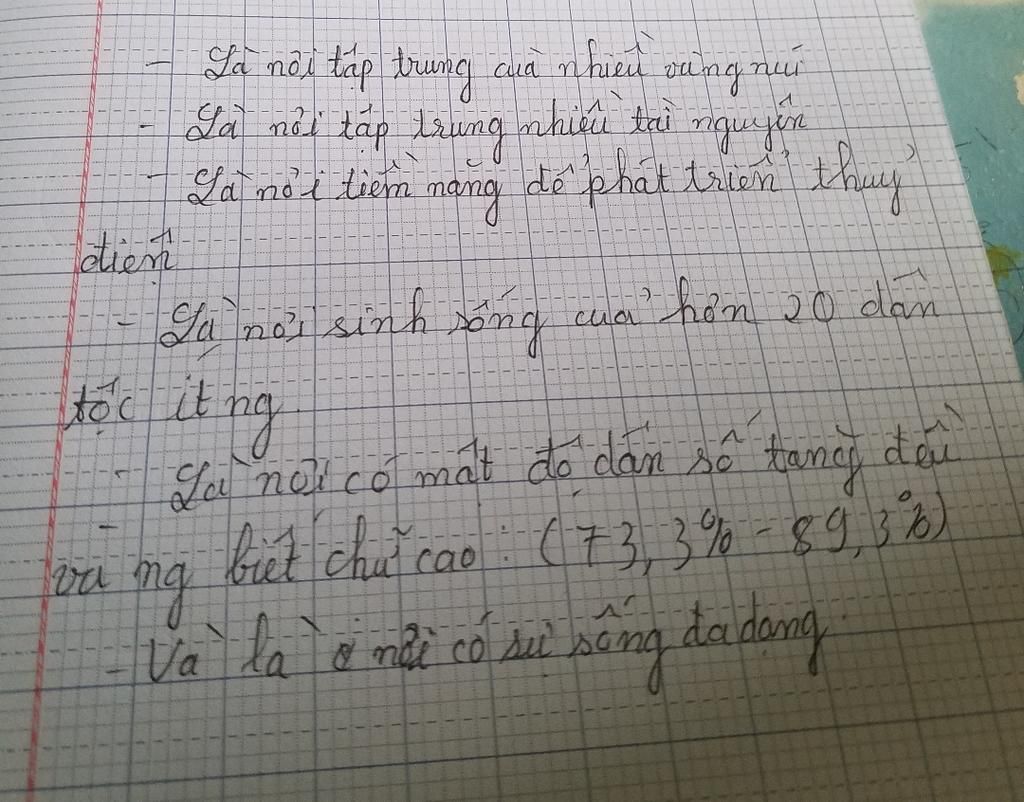 - Là nơi tập trung của nhiều vùng núi
- Là nơi tập trung nhiều tài nguyên
- Là nơi tiềm năng để phát triển thuỷ
điện
- Là nơi sinh sống của hơn 20 dân
tộc ít ng
- Là nơi có mật độ dân số tăng đều
và ng biết chữ cao : (73,3% - 89,3%)
- Và là ở nơi có sự sống đa dạng.